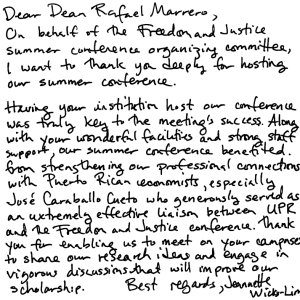 Dear Dean Rafael Marrero,
On behalf of the Freedom and Justice
summer conference organizing committee,
I want to thank you deeply for hosting
our summer conference.
Having your institution host our conference
was truly key to the meeting's success. Along
with your wonderful facilities and strong staff
support, our summer conference benefited
from strengthening our professional connections
with Puerto Rican economists, especially
José Caraballo Cueto who generously served as
an extremely effective liaison between UPR
and the Freedom and Justice conference. Thank
you for enabling us to meet on your campus
to share our research ideas and engage in
vigorous discussions that will improve our
scholarship. Best regards, Jennette
Wicks-Lim